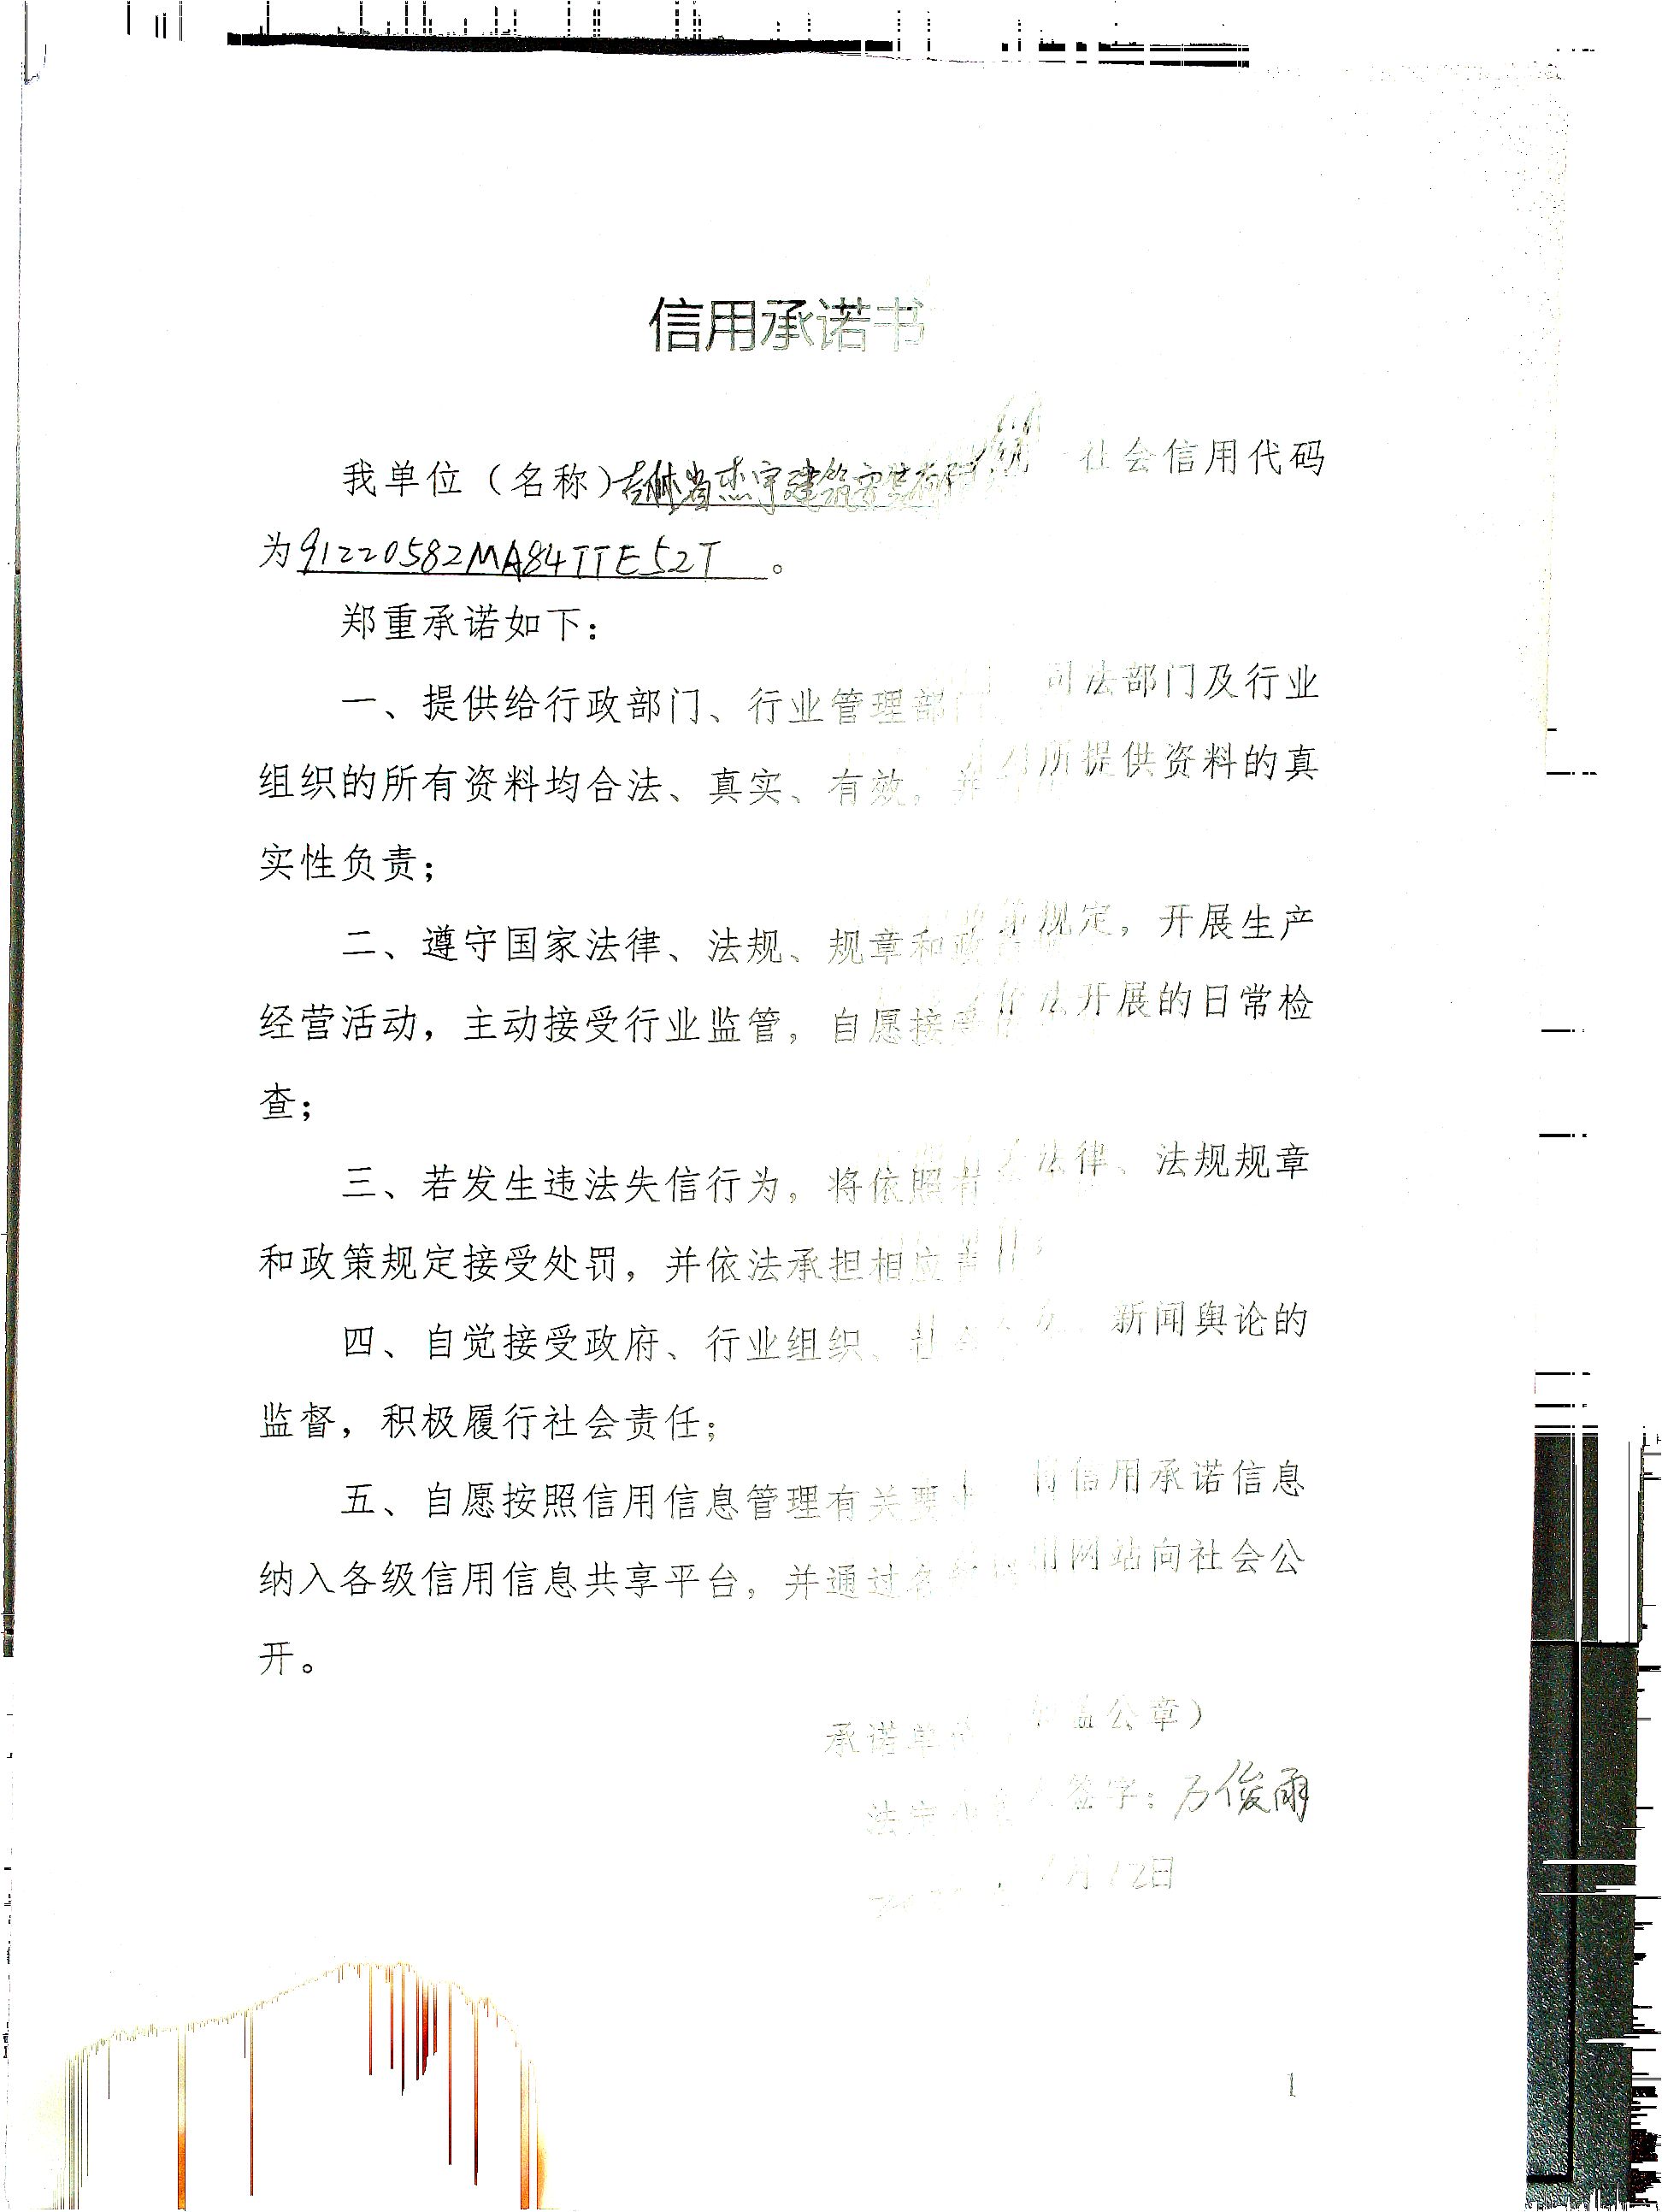 信用承诺书
我单位（名称）吉林省杰宇建筑安装有限 统一社会信用代码
为91220582MA84TTE52T。
郑重承诺如下：
一、提供给行政部门、行业管理部门、司法部门及行业
组织的所有资料均合法、真实、有效，并对所提供资料的真
实性负责；
二、遵守国家法律、法规、规章和政策规定，开展生产
经营活动，主动接受行业监管，自愿接受依法开展的日常检
查；
三、若发生违法失信行为，将依照有关法律、法规规章
和政策规定接受处罚，并依法承担相应责任；
四、自觉接受政府、行业组织、社会公众、新闻舆论的
监督，积极履行社会责任；
五、自愿按照信用信息管理有关要求，将信用承诺信息
纳入各级信用信息共享平台，并通过各级信用网站向社会公
开。
承诺单位（加盖公章）
法定代表人签字：万俊雨
月12日
1